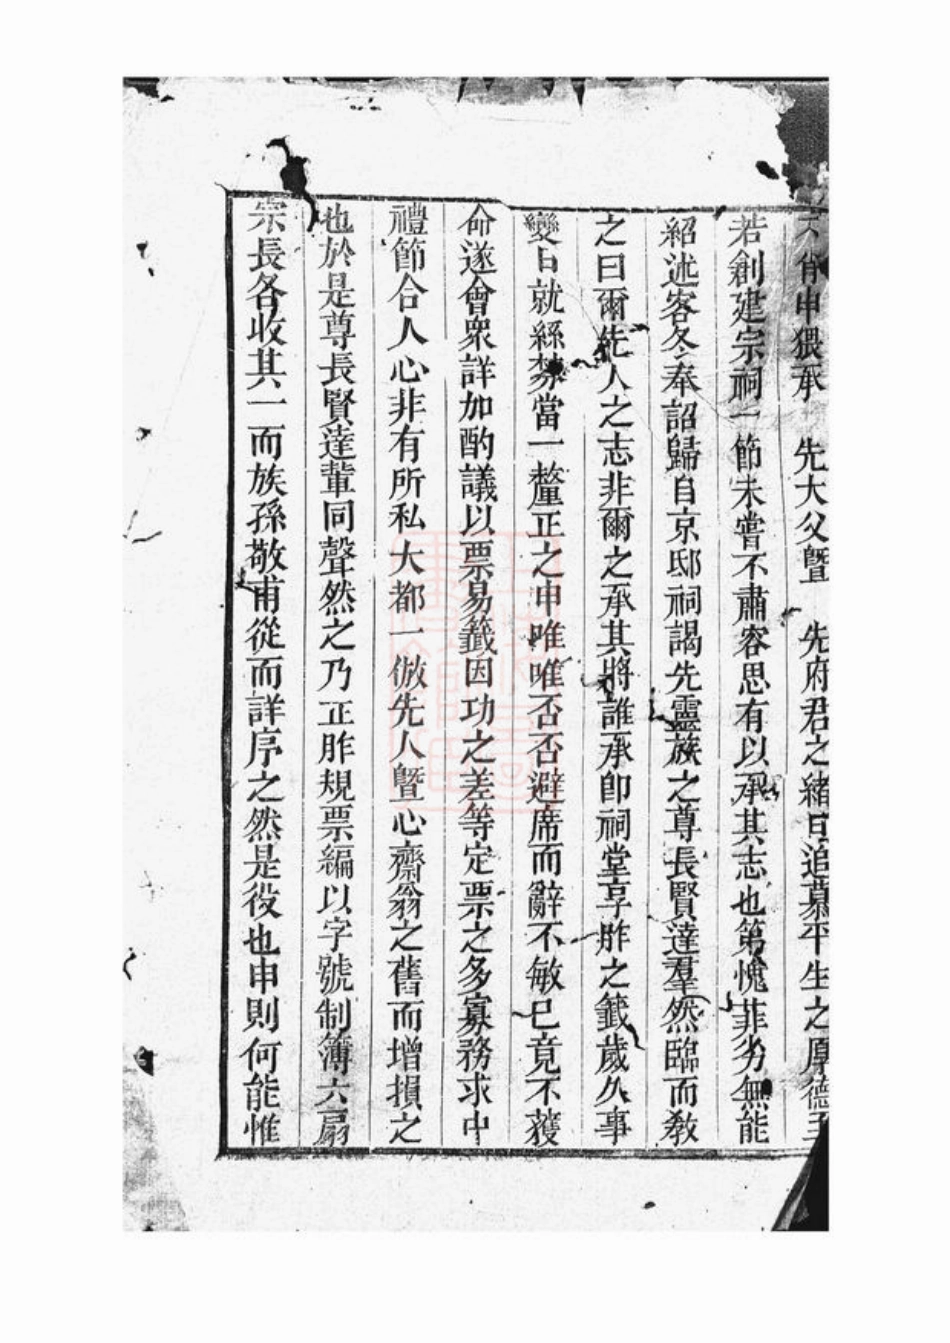 不肖申猥承　先大父曁　先府君之緒日追慕平生之厚德至
若創建宗祠一節未嘗不肅容思有以承其志也第愧菲劣無能
紹述客冬奉詔歸自京邸祠謁先靈族之尊長賢達羣然臨而敎
之曰爾先人之志非爾之承其將誰承卽祠堂享胙之籤歲久事
變日就絲棼當一釐正之申唯唯否否避席而辭不敏已竟不獲
命遂會衆詳加酌議以票易籤因功之差等定票之多寡務求中
禮節合人心非有所私大都一倣先人曁心齋翁之舊而增損之
也於是尊長賢達輩同聲然之乃正胙規票編以字號制簿六扇
宗長各收其一而族孫敬甫從而詳序之然是役也申則何能惟